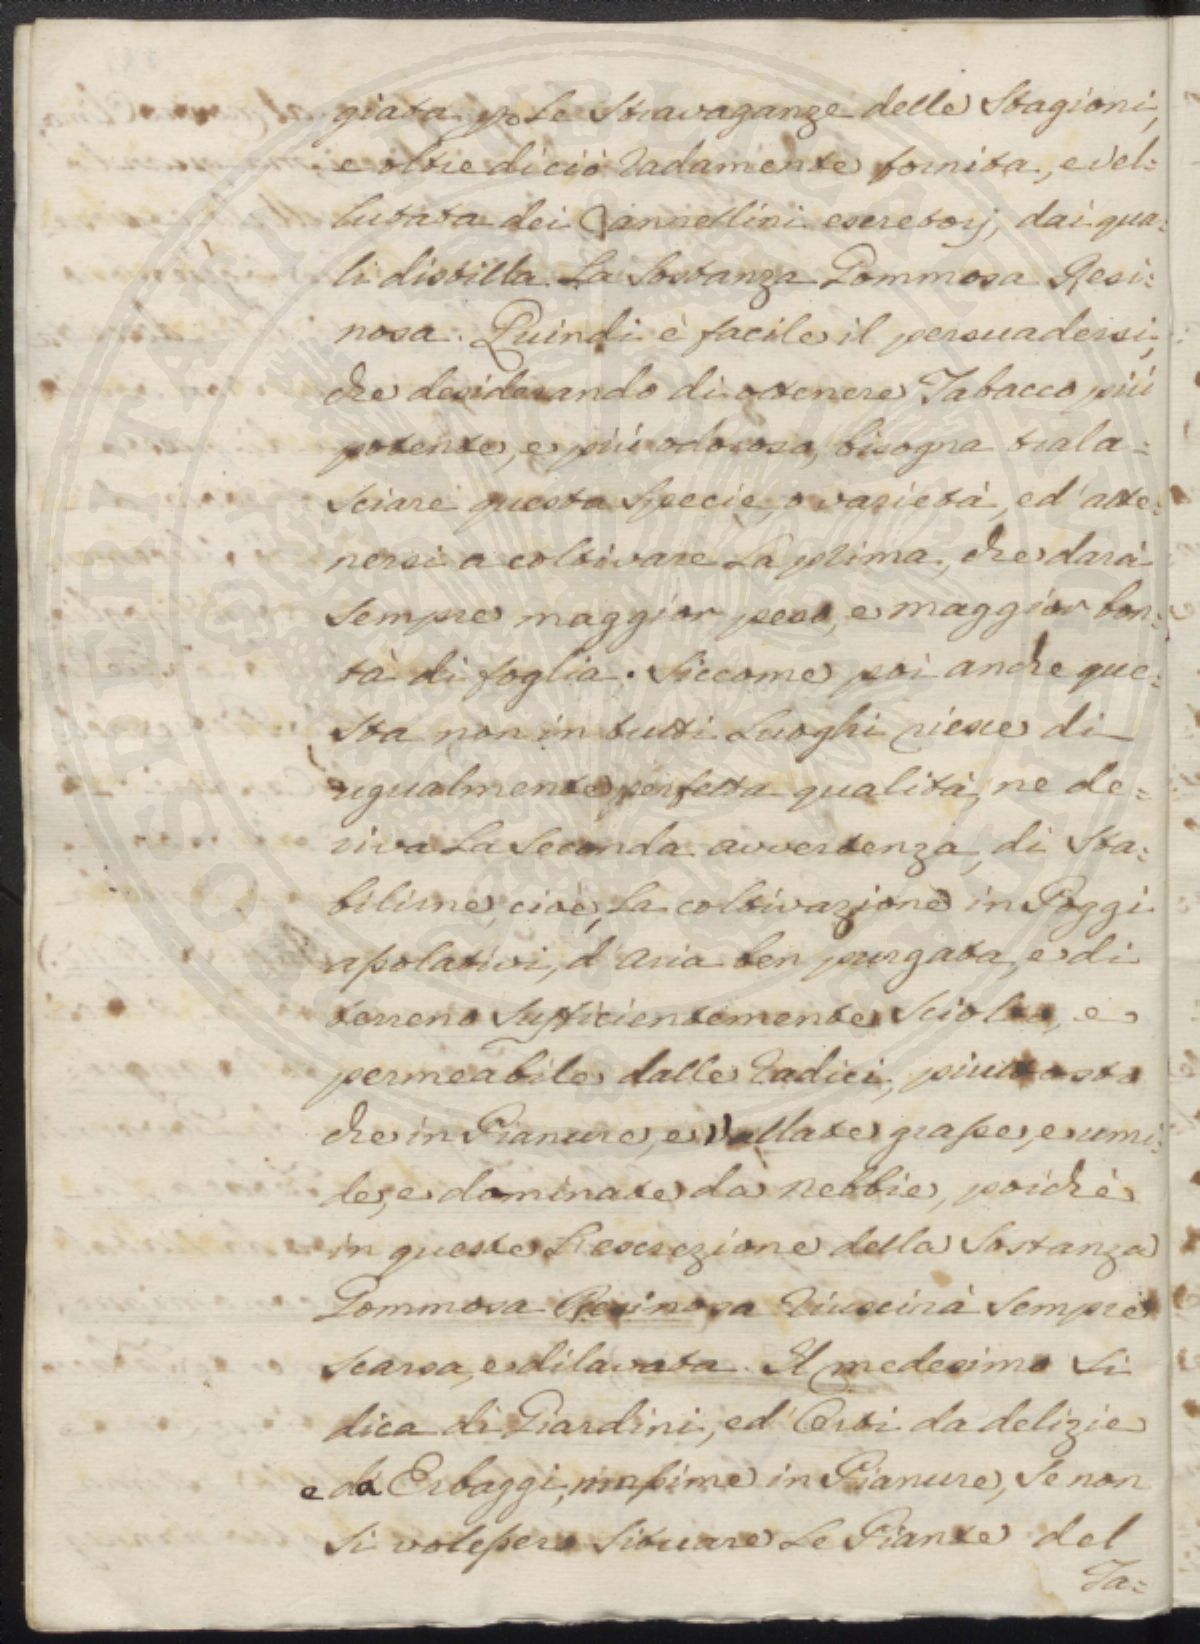 giata p. le Stravaganze delle Stagioni,
e oltre di ciò radamente fornita, e vel=
lutata dei Cannellini escretorj, dai qua=
li distilla la Sostanza Gommosa Resi=
nosa. Quindi è facile il persuadersi,
che desiderando di ottenere Tabacco più
potente, e più odoroso, bisogna trala=
sciare questa Specie, o varietà, ed atte=
nersi a coltivare la prima, che darà
sempre maggior peso, e maggior bon=
tà di foglia. Siccome poi anche que=
sta non in tutti Luoghi riesce di
ugualmente perfetta qualità, ne de=
riva la Seconda avvertenza, di Sta=
bilirne, cioè, la coltivazione in Poggi
apolativi, d'Aria ben purgata, e di
terreno Sufficientemente Sciolto, e
permeabile dalle radici, piuttosto
che in Pianure, e Vallate grasse, e umi=
de, e dominate da Nebbie, poichè
in queste l'escrezione della Sostanza
Gommosa Resinosa riuscirà Sempre
Scarsa, e dilavata. Il medesimo Si
dica di Giardini, ed Orti da delizie
e da Erbaggi, massime in Pianure, Se non
Si volessero Situare le Piante del
Ta=
HOSPITATI VEL